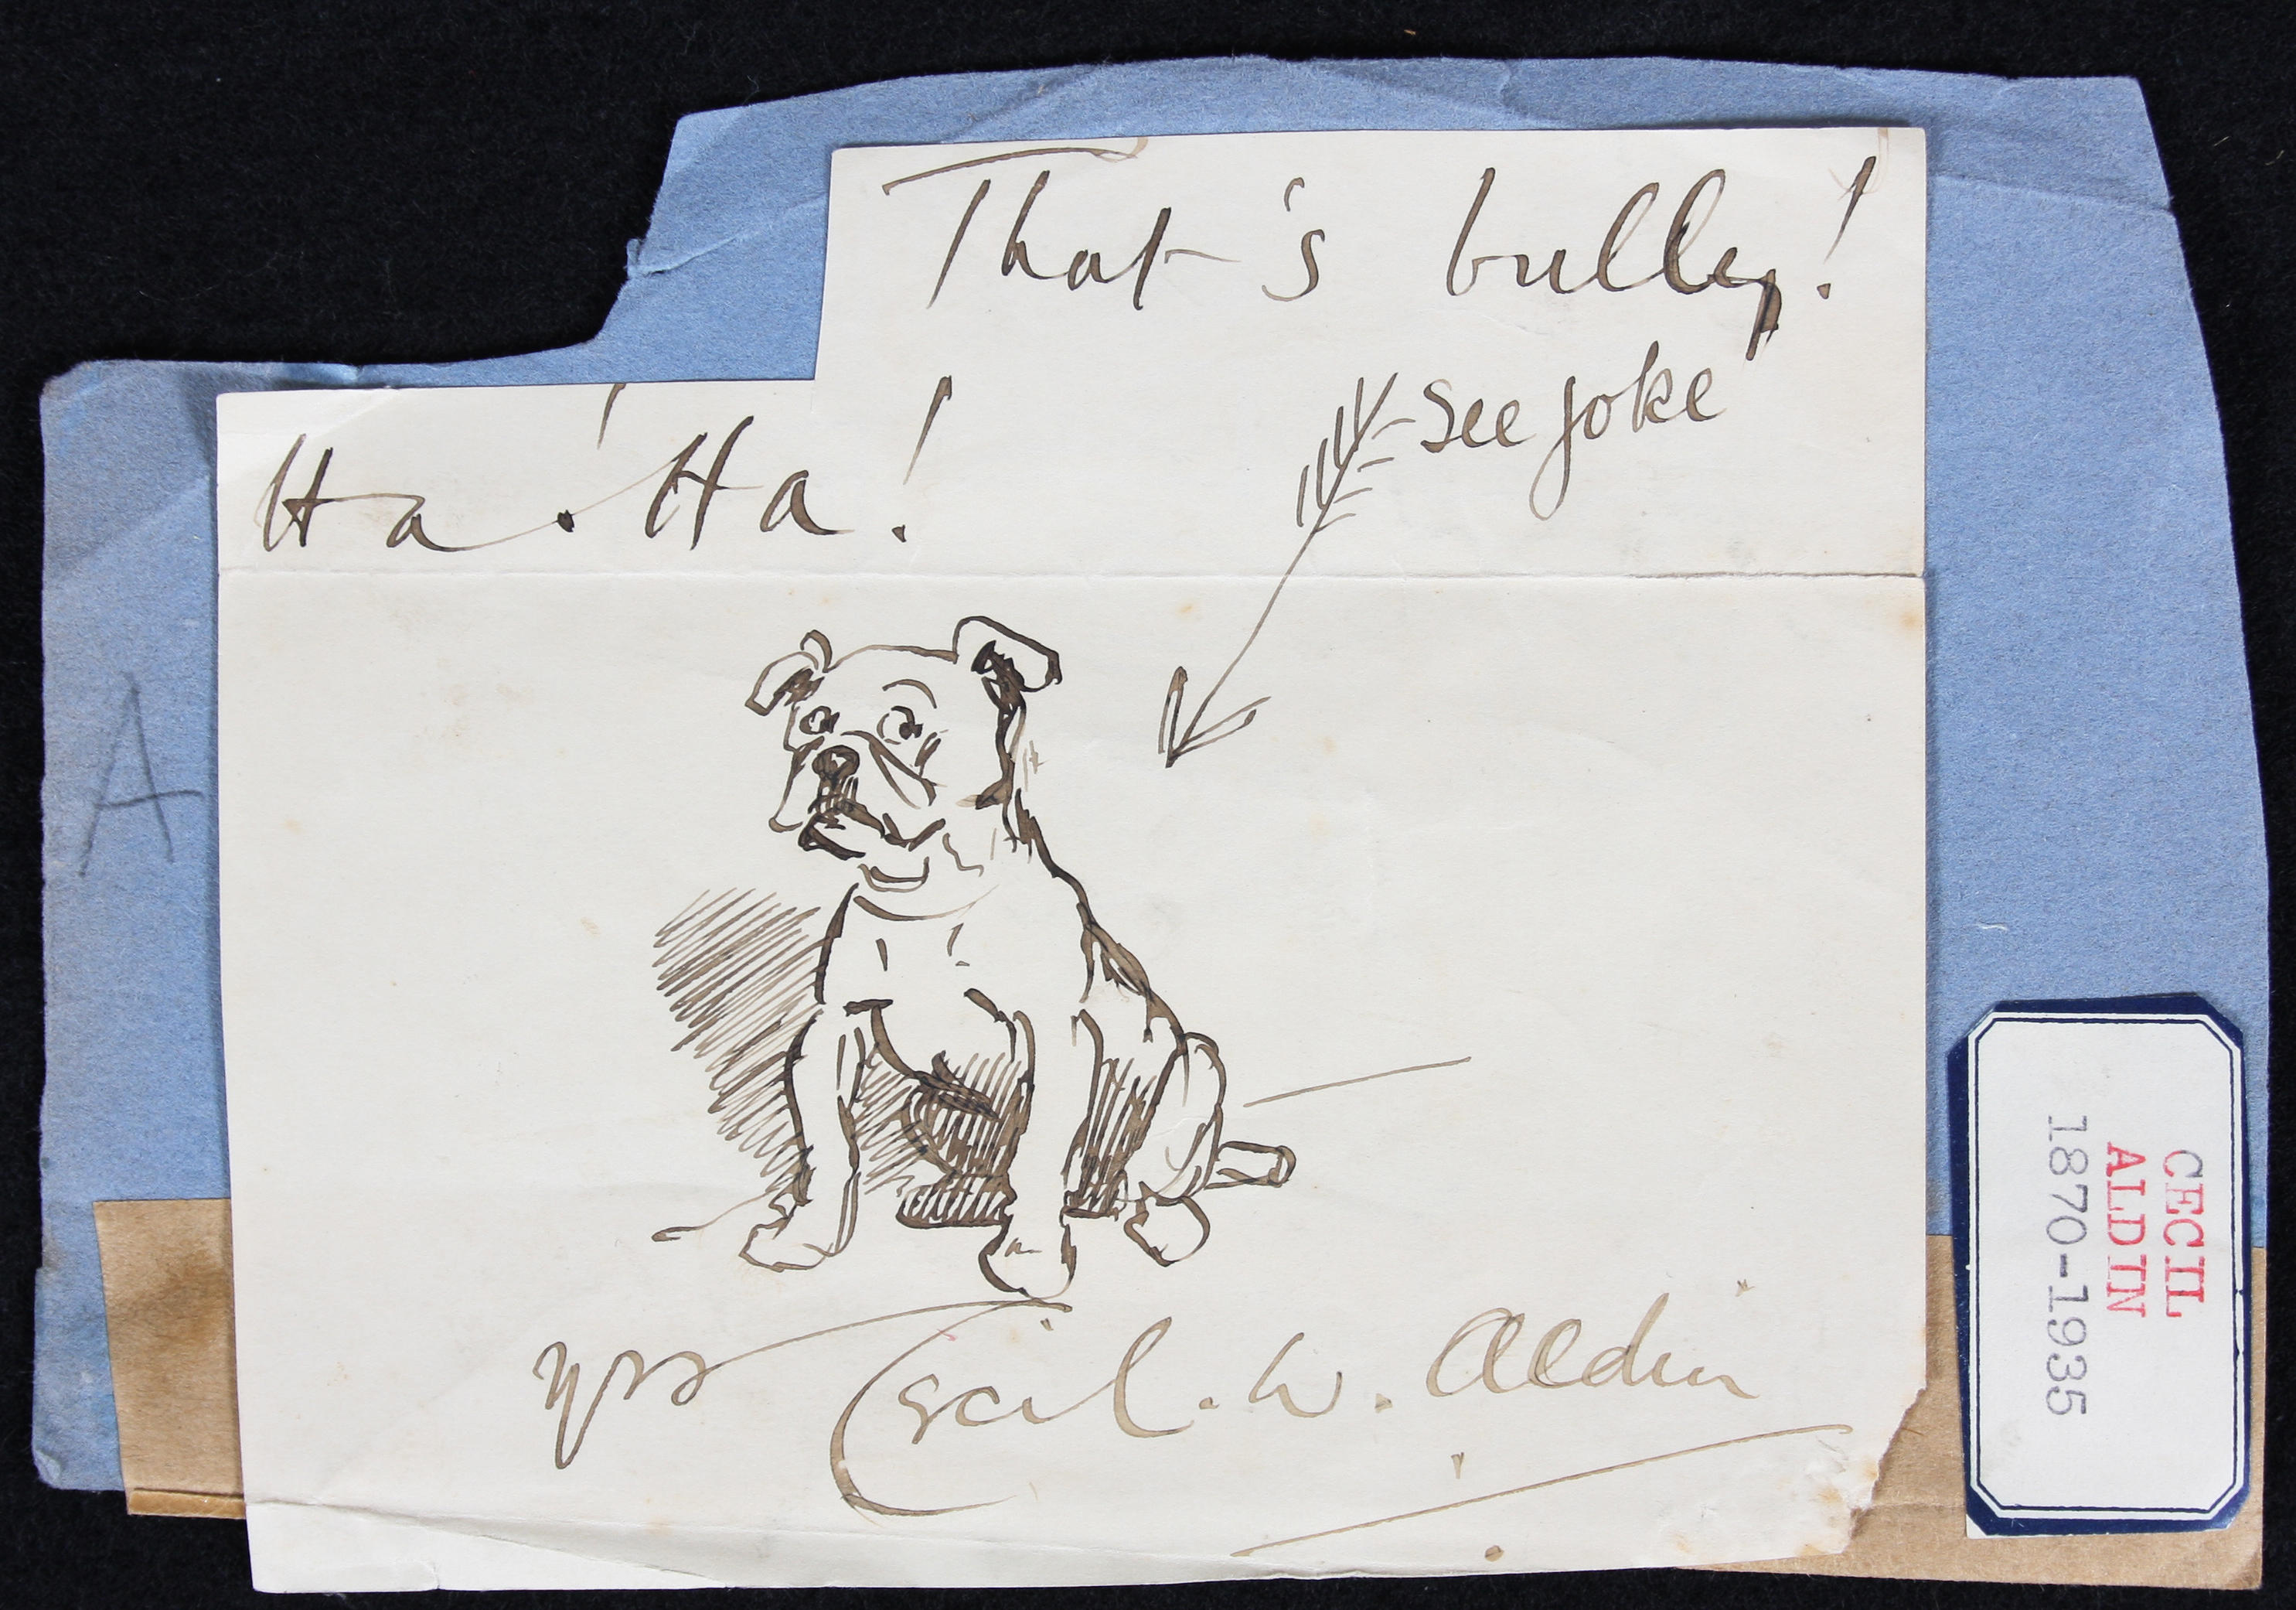 That's bully!
see joke
Ha! Ha!
yrs Cecil. W. Aldin
A
CECIL
ALDIN
1870-1935